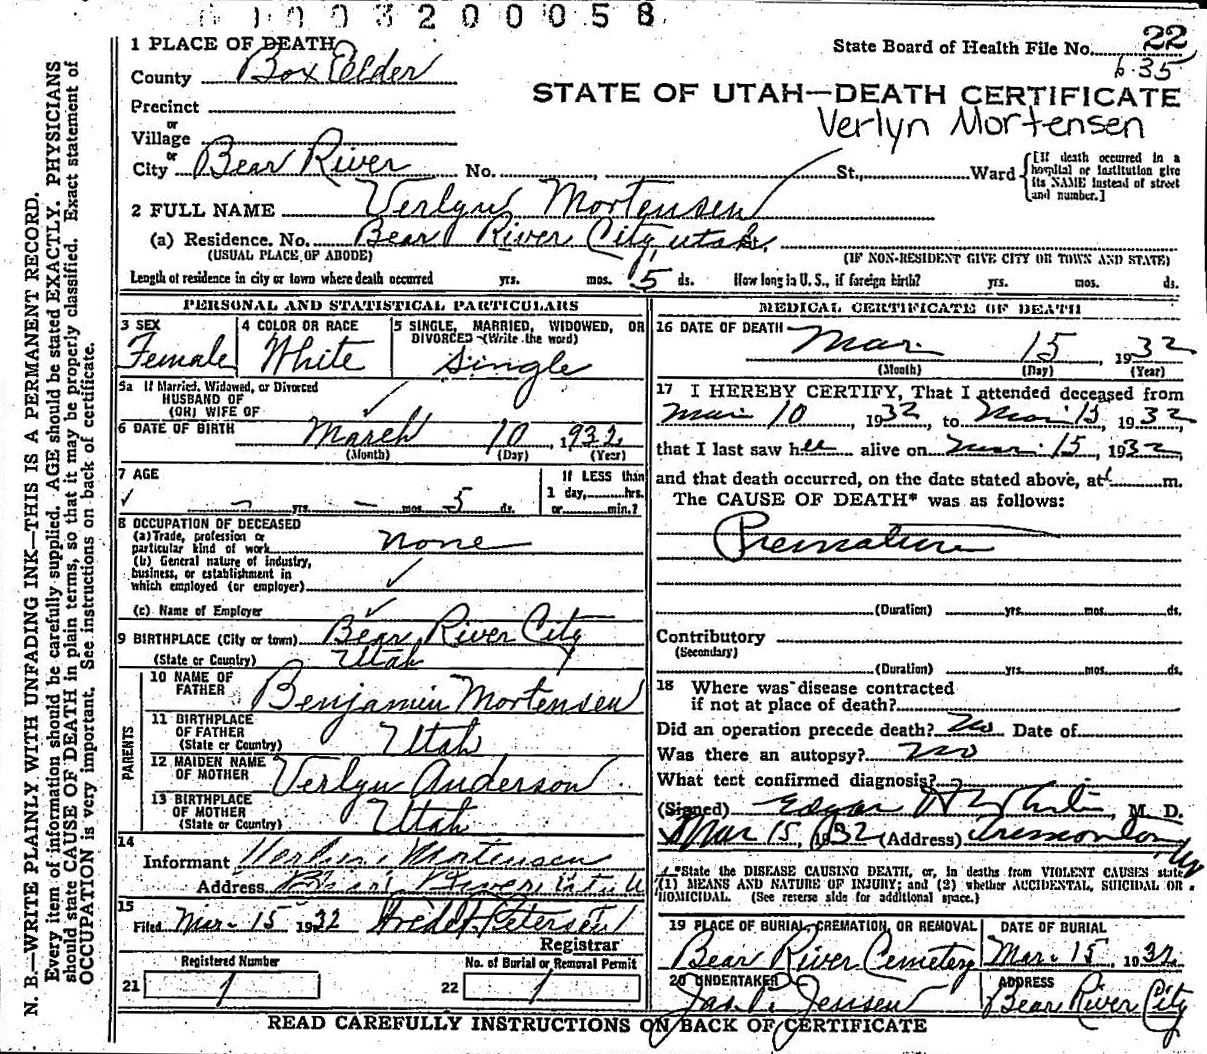 0 1 0 0 3 2 0 0 0 5 8
State Board of Health File No. 22
6-35
STATE OF UTAH—DEATH CERTIFICATE
Verlyn Mortensen
1 PLACE OF DEATH
County Box Elder
Precinct
or
Village
or
City Bear River No. , St., Ward {[If death occurred in a hospital or institution give its NAME instead of street and number.]
2 FULL NAME Verlyn Mortensen
(a) Residence. No. Bear River City, Utah.
(USUAL PLACE OF ABODE) (IF NON-RESIDENT GIVE CITY OR TOWN AND STATE)
Length of residence in city or town where death occurred yrs. mos. 5 ds. How long in U. S., if foreign birth? yrs. mos. ds.
PERSONAL AND STATISTICAL PARTICULARS
3 SEX
Female
4 COLOR OR RACE
White
5 SINGLE, MARRIED, WIDOWED, OR
DIVORCED (Write the word)
Single
5a If Married, Widowed, or Divorced
HUSBAND OF
(OR) WIFE OF
6 DATE OF BIRTH March 10, 1932
(Month) (Day) (Year)
7 AGE
If LESS than
1 day, hrs.
or min.?
- yrs. - mos. 5 ds.
8 OCCUPATION OF DECEASED
(a) Trade, profession or
particular kind of work none
(b) General nature of industry,
business, or establishment in
which employed (or employer)
(c) Name of Employer
9 BIRTHPLACE (City or town) Bear River City
(State or Country) Utah
PARENTS
10 NAME OF
FATHER Benjamin Mortensen
11 BIRTHPLACE
OF FATHER
(State or Country) Utah
12 MAIDEN NAME
OF MOTHER Verlyn Anderson
13 BIRTHPLACE
OF MOTHER
(State or Country) Utah
14
Informant Mortensen
Address Bear River
15
Filed Mar. 15 1932 Petersen
Registrar
Registered Number
21 1
No. of Burial or Removal Permit
22 1
MEDICAL CERTIFICATE OF DEATH
16 DATE OF DEATH
Mar. 15, 1932
(Month) (Day) (Year)
17 I HEREBY CERTIFY, That I attended deceased from
Mar 10, 1932, to Mar. 15, 1932,
that I last saw her alive on Mar. 15, 1932,
and that death occurred, on the date stated above, at m.
The CAUSE OF DEATH* was as follows:
Premature
(Duration) yrs. mos. ds.
Contributory
(Secondary)
(Duration) yrs. mos. ds.
18 Where was disease contracted
if not at place of death?
Did an operation precede death? No Date of
Was there an autopsy? No
What test confirmed diagnosis?
(Signed) Edgar M. D.
Mar 15, 1932 (Address) Tremonton
*State the DISEASE CAUSING DEATH, or, in deaths from VIOLENT CAUSES state
(1) MEANS AND NATURE OF INJURY; and (2) whether ACCIDENTAL, SUICIDAL OR
HOMICIDAL. (See reverse side for additional space.)
19 PLACE OF BURIAL, CREMATION, OR REMOVAL
Bear River Cemetery
DATE OF BURIAL
Mar. 15, 1932
20 UNDERTAKER
Jas. P. Jensen
ADDRESS
Bear River City
READ CAREFULLY INSTRUCTIONS ON BACK OF CERTIFICATE
N. B.—WRITE PLAINLY WITH UNFADING INK—THIS IS A PERMANENT RECORD.
Every item of information should be carefully supplied. AGE should be stated EXACTLY. PHYSICIANS
should state CAUSE OF DEATH in plain terms, so that it may be properly classified. Exact statement of
OCCUPATION is very important. See instructions on back of certificate.